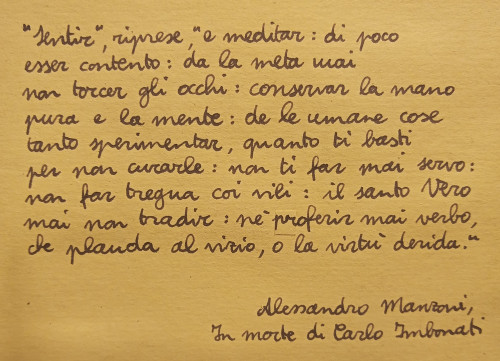 "Sentir", riprese, "e meditar: di poco
esser contento: da la meta mai
non torcer gli occhi: conservar la mano
pura e la mente: de le umane cose
tanto sperimentar, quanto ti basti
per non curarle: non ti far mai servo:
non far tregua coi vili: il santo Vero
mai non tradir: nè proferir mai verbo,
che plauda al vizio, o la virtù derida."
Alessandro Manzoni,
In morte di Carlo Imbonati